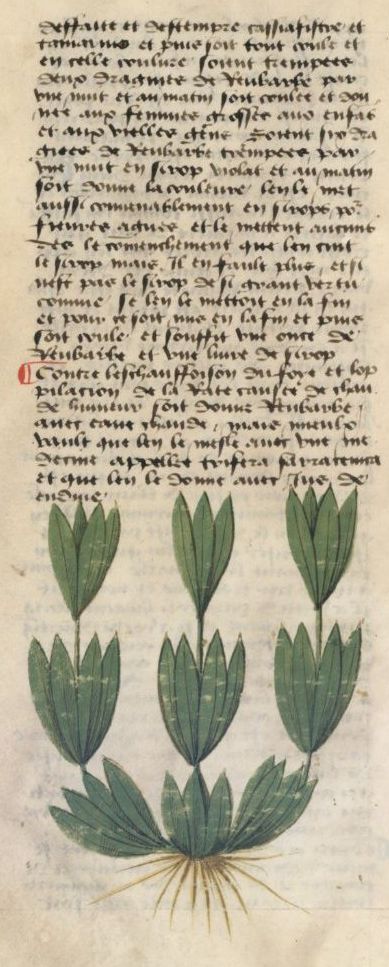 deffaite et destempre cassiafistre et
tamarins et puis soit tout coule et
en celle coulure soient trempees
deux dragmes de Reubarbe par
vne nuit et au matin soit coulee et don
nee aux femmes grosses aux enfās
et aux vielles gēns Soient six dra
gmes de Reubarbe trēmpees par
vne nuit en sirop violat et au matin
soit donne la couleure len le met
aussi conuenablement en sirops por
fieures agues et le mettent aucuns
des le comenchement que len cuit
le sirop mais Il en fault plus et si
nest pas le sirop de si grant vertu
comme se len le mettoit en la fin
et pour ce soit mis en la fin et puis
soit coule et souffit vne once de
Reubarbe et vne liure de sirop
Contre leschauffoison du foye et lop
pilacion de la Rate causee de chau
de humeur soit donne Reubarbe
auec eaue chaude mais mieulx
vault que len le mesle auec vne me
decine appellee trifera sarracenica
et que len le donne auec Jus de
endiuie